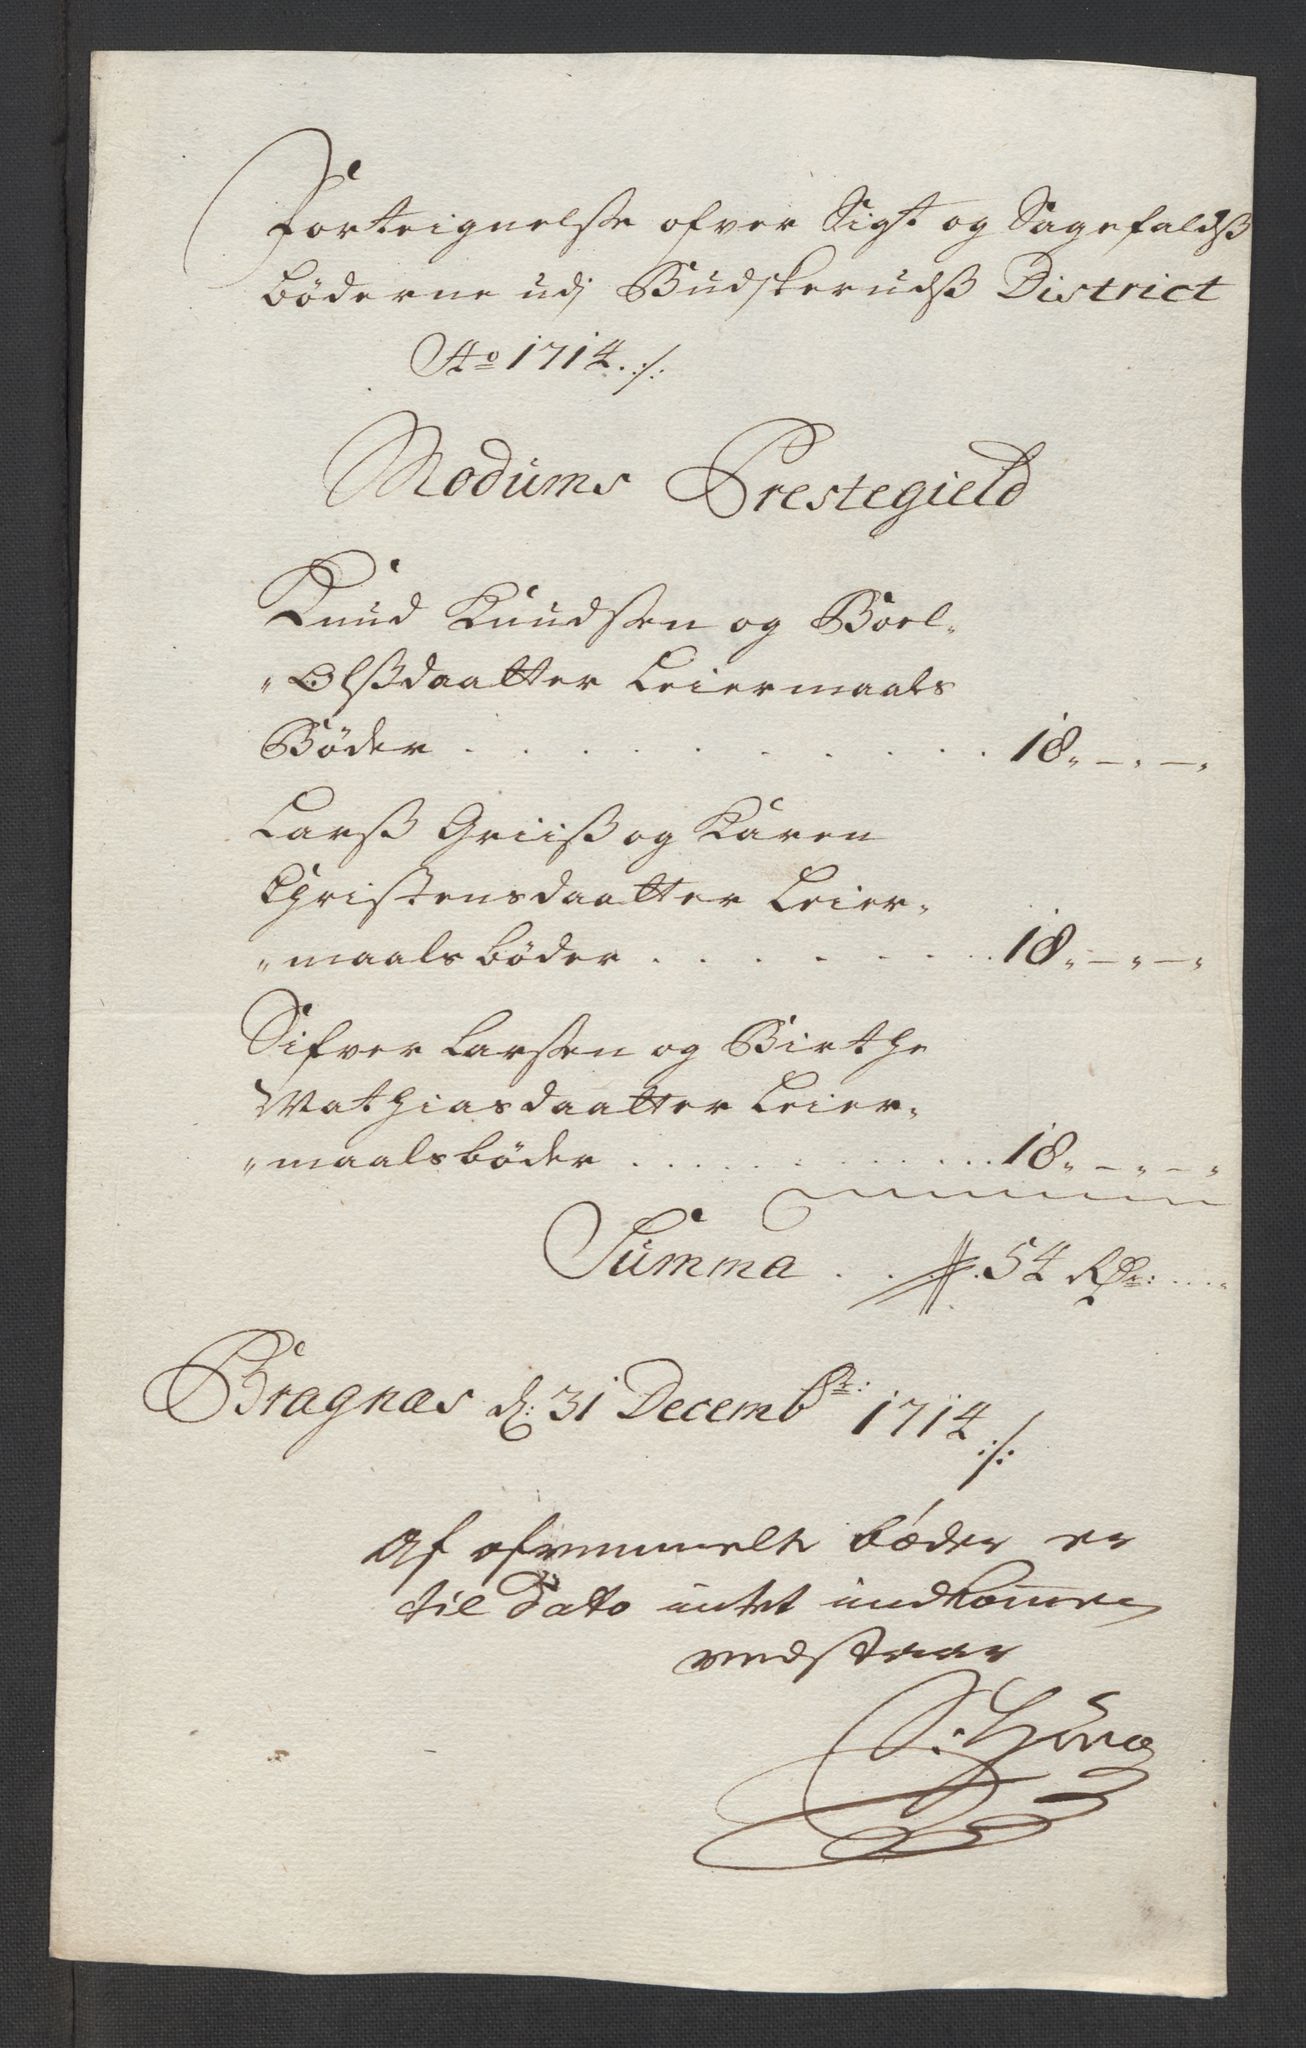 Forteignelsse ofver Sigt og Sagefaldsß
bøderne udj Budskerudß District
Ao 1714 ./.
Modums Prestegield
Knud Knudssen og Boel
"Olßdaatter Leiermaals
Bøder . . . . . . . . . . 18„—„—„
Larß Griiß og Karen
Christensdaatter Leier„
„maals bøder . . . . . . . 18„—„—„
Sifver Larssen og Birthe
Mathiasdaatter Leier„
„maalsbøder . . . . . . . . . 18„—„—„
Summa . . 54 Rdr: ....
Bragnæs d: 31 Decembr: 1714 ./.
Af ofvenmelte bøder er
til Dato intet indkommen
vedstaar